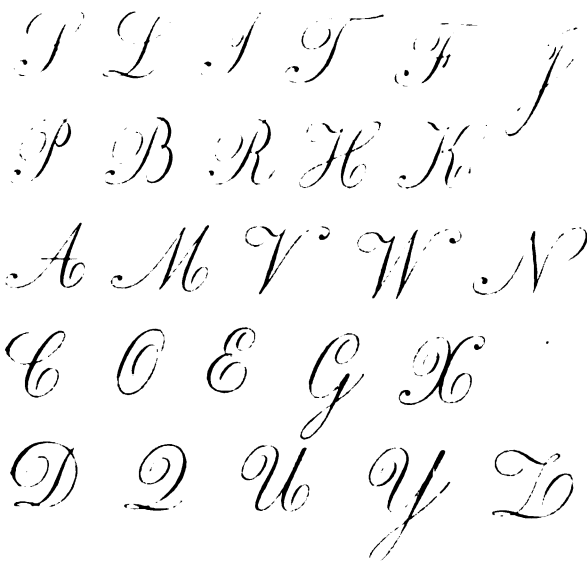 S L I T F J
P B R H K
A M V W N
C O E G X
D Q U Y Z